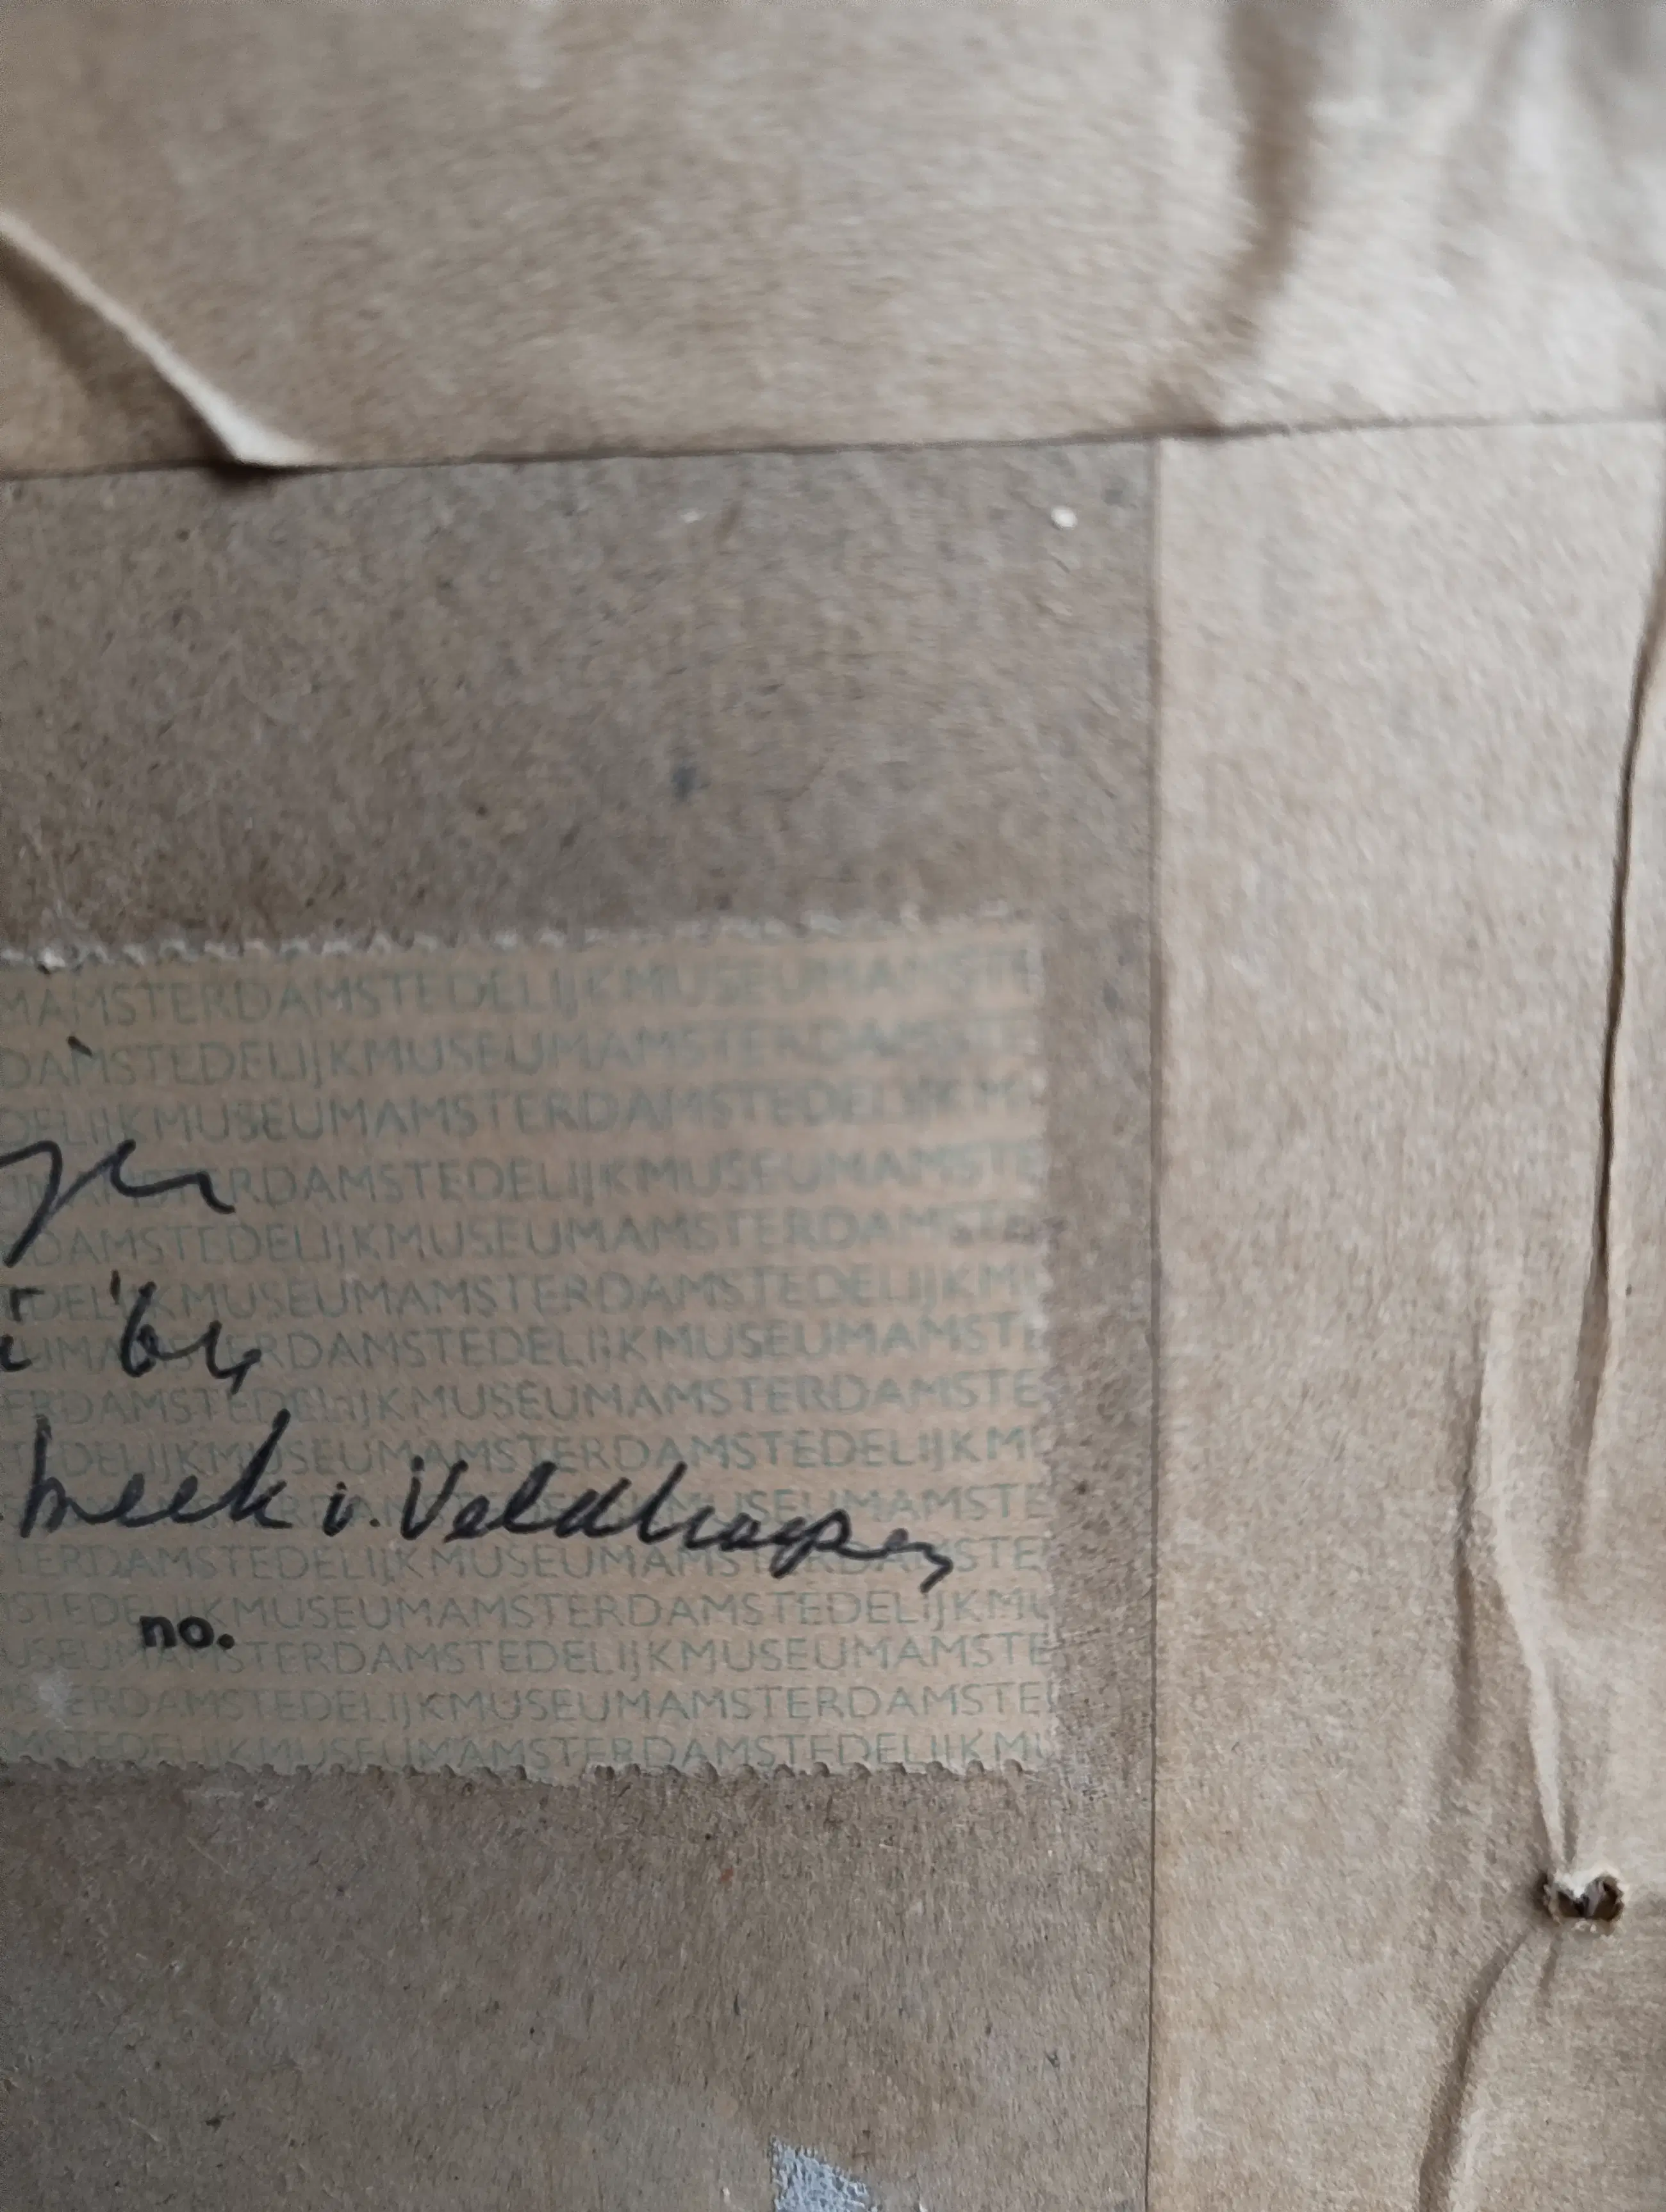 MAMSTERDAMSTEDELIJKMUSEUMAMSTE
DAMSTEDELIJKMUSEUMAMSTERDAMSTE
DELIJKMUSEUMAMSTERDAMSTEDELIJKM
RDAMSTEDELIJKMUSEUMAMSTE
DAMSTEDELIJKMUSEUMAMSTERDAMSTE
DEL KMUSEUMAMSTERDAMSTEDELIJKMU
'64
UMA RDAMSTEDELIJKMUSEUMAMSTE
ERDAMSTEDELIJKMUSEUMAMSTERDAMSTE
TEDELIJKMUSEUMAMSTERDAMSTEDELIJKMU
beek v. Veldhoven
MUSEUMAMSTE
TERDAMSTEDELIJKMUSEUMAMSTERDAMSTE
STEDELIJKMUSEUMAMSTERDAMSTEDELIJKMU
no.
USEUMAMSTERDAMSTEDELIJKMUSEUMAMSTE
STERDAMSTEDELIJKMUSEUMAMSTERDAMSTE
MSTEDELIJKMUSEUMAMSTERDAMSTEDELIJKMU